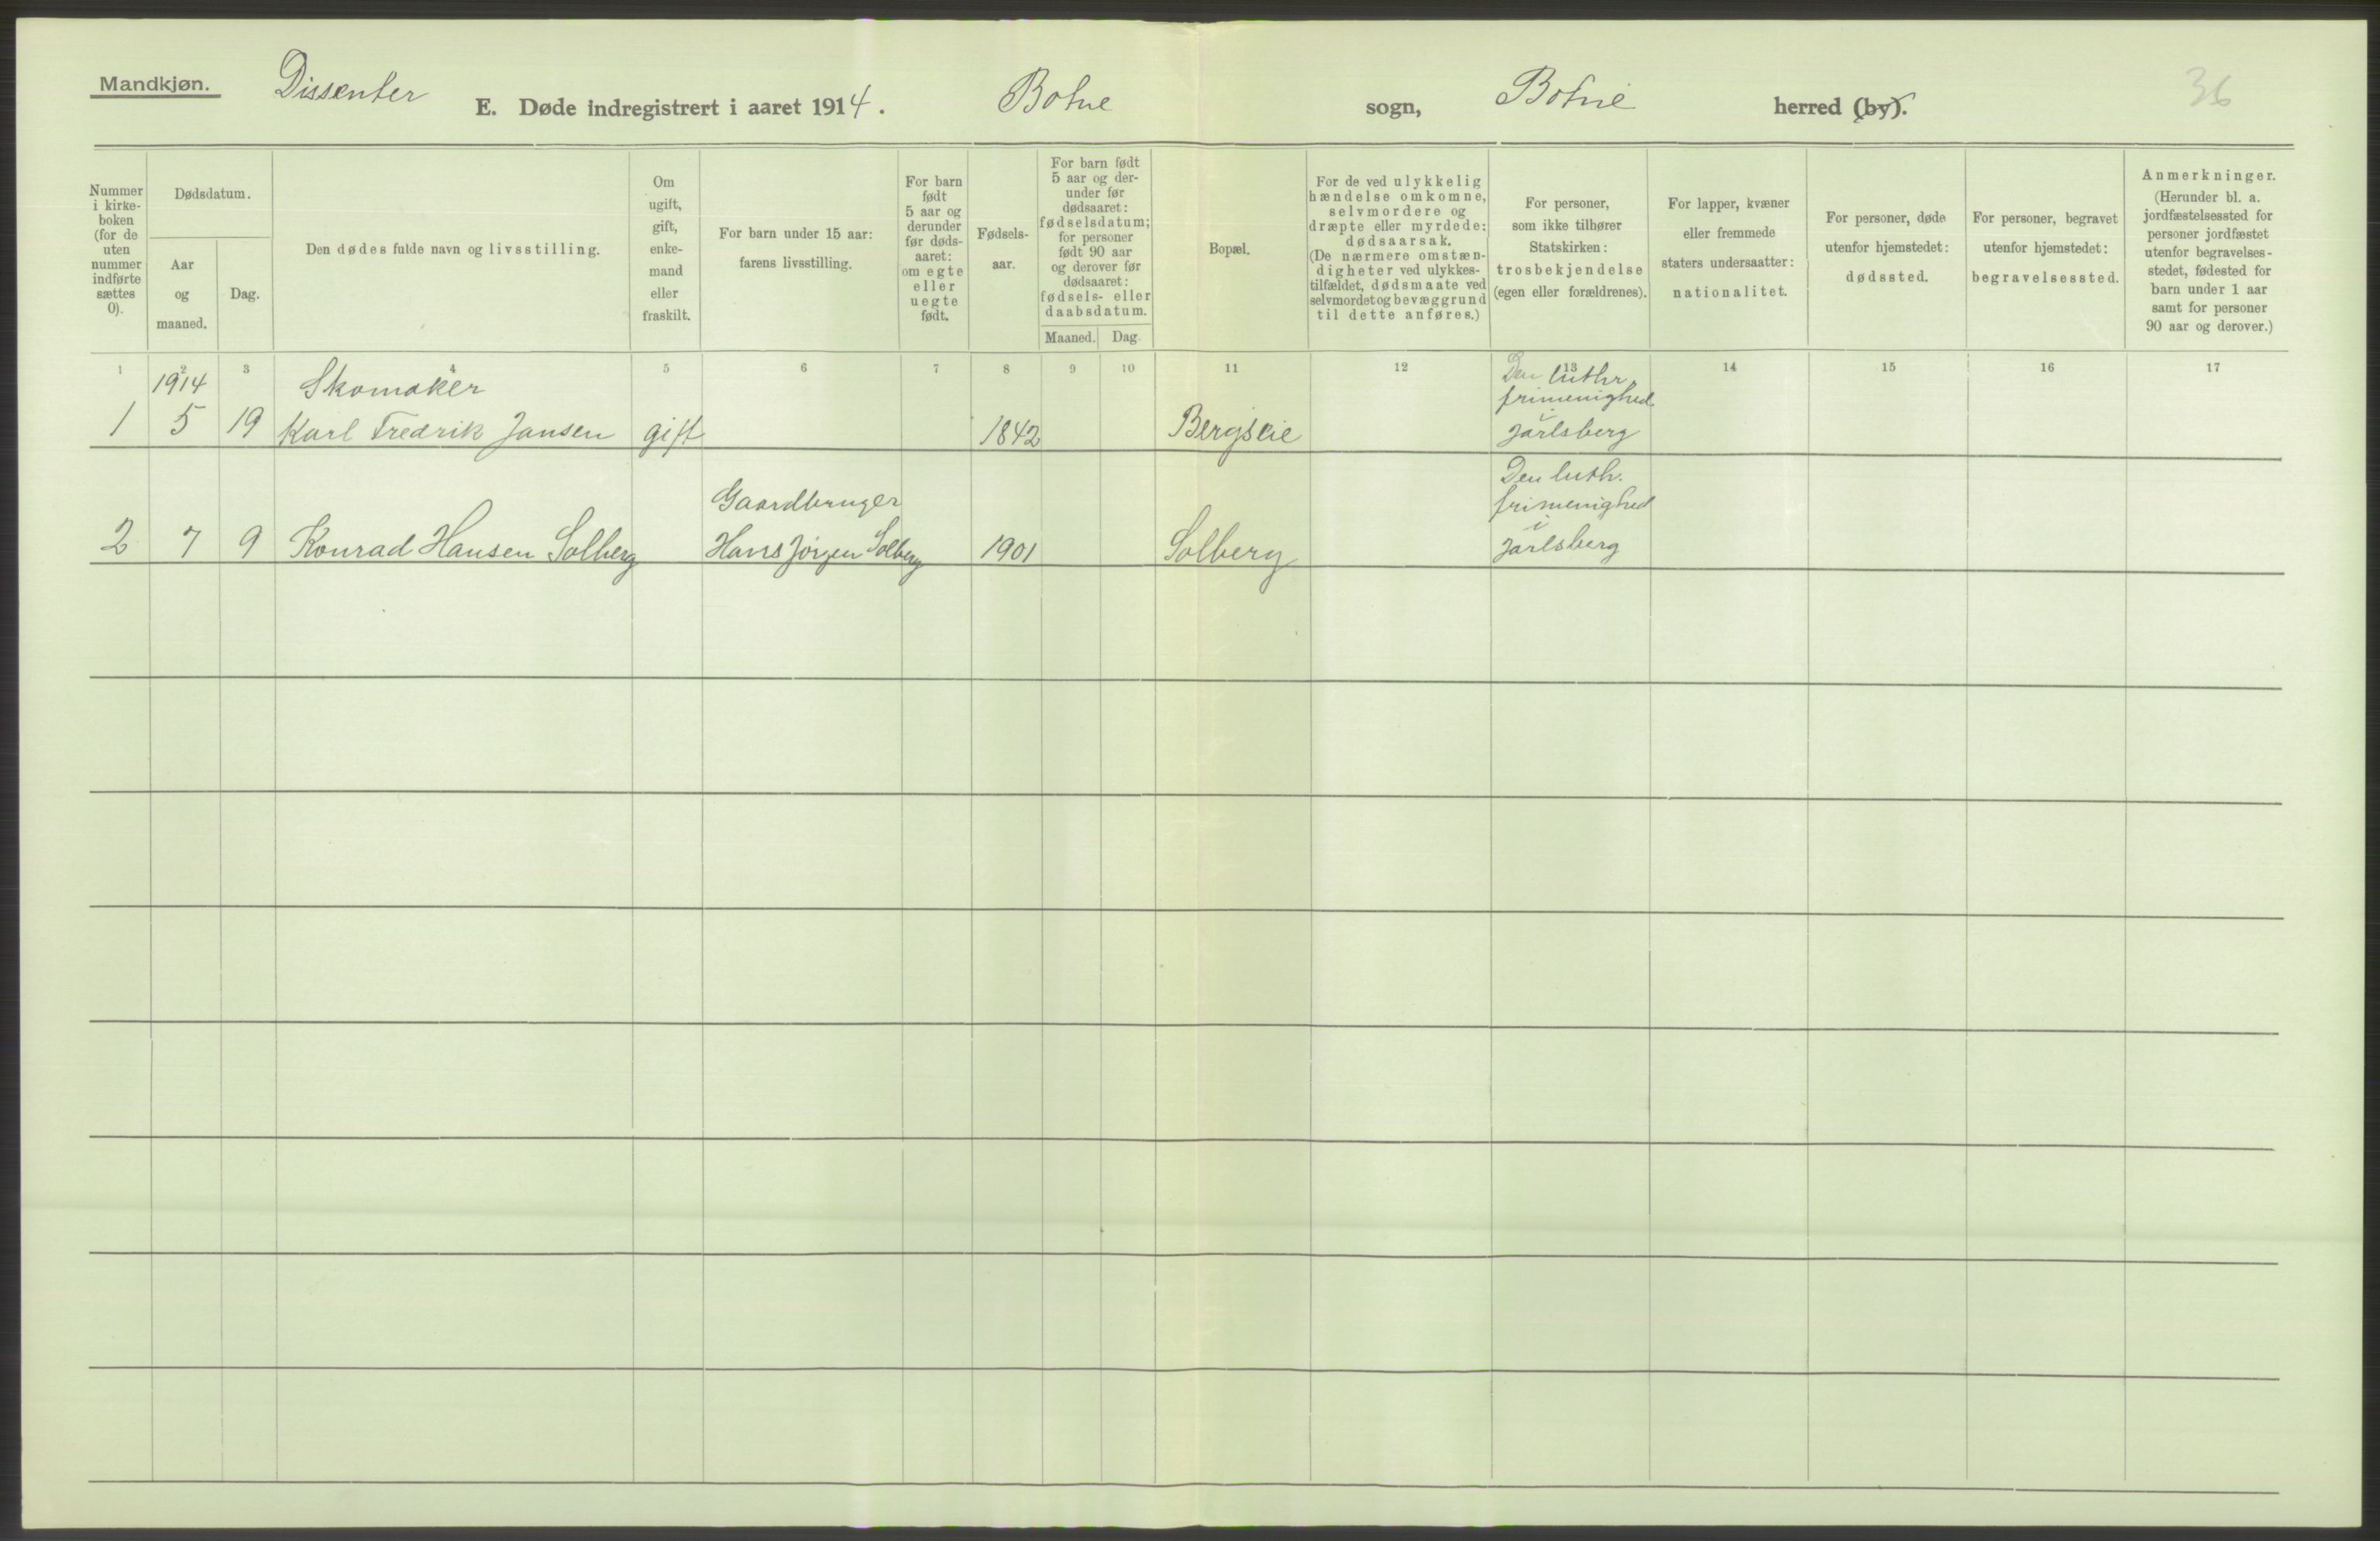 Mandkjøn.
Dissenter
E. Døde indregistrert i aaret 1914.
Botne
sogn,
Botne
herred (by).
36
Nummer
i kirke-
boken
(for de
uten
nummer
indførte
sættes
0).
Dødsdatum.
Aar
og
maaned.
Dag.
Den dødes fulde navn og livsstilling.
Om
ugift,
gift,
enke-
mand
eller
fraskilt.
For barn under 15 aar:
farens livsstilling.
For barn
født
5 aar og
derunder
før døds-
aaret:
om egte
eller
uegte
født.
Fødsels-
aar.
For barn født
5 aar og der-
under før
dødsaaret:
fødselsdatum;
for personer
født 90 aar
og derover før
dødsaaret:
fødsels- eller
daabsdatum.
Maaned.
Dag.
Bopæl.
For de ved ulykkelig
hændelse omkomne,
selvmordere og
dræpte eller myrdede:
dødsaarsak.
(De nærmere omstæn-
digheter ved ulykkes-
tilfældet, dødsmaate ved
selvmordet og bevæggrund
til dette anføres.)
For personer,
som ikke tilhører
Statskirken:
trosbekjendelse
(egen eller forældrenes).
For lapper, kvæner
eller fremmede
staters undersaatter:
nationalitet.
For personer, døde
utenfor hjemstedet:
dødssted.
For personer, begravet
utenfor hjemstedet:
begravelsessted.
Anmerkninger.
(Herunder bl. a.
jordfæstelsessted for
personer jordfæstet
utenfor begravelses-
stedet, fødested for
barn under 1 aar
samt for personer
90 aar og derover.)
1 2 3 4 5 6 7 8 9 10 11 12 13 14 15 16 17
1914
Skomaker
1 5 19 Karl Fredrik Jansen gift 1842 Bergseie
Den luthr.
frimenighed
i
Jarlsberg
Gaardbruger
2 7 9 Konrad Hansen Solberg Hans Jørgen Solberg 1901 Solberg
Den luth.
frimenighed
i
Jarlsberg